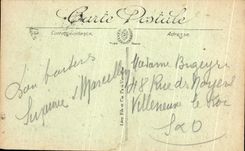 Carte Postale
Correspondance
Adresse
Bons baisers
Suzanne & Marcelle
Madame Brageyre
48 Rue de Noyers
Villeneuve le Roi
S & O